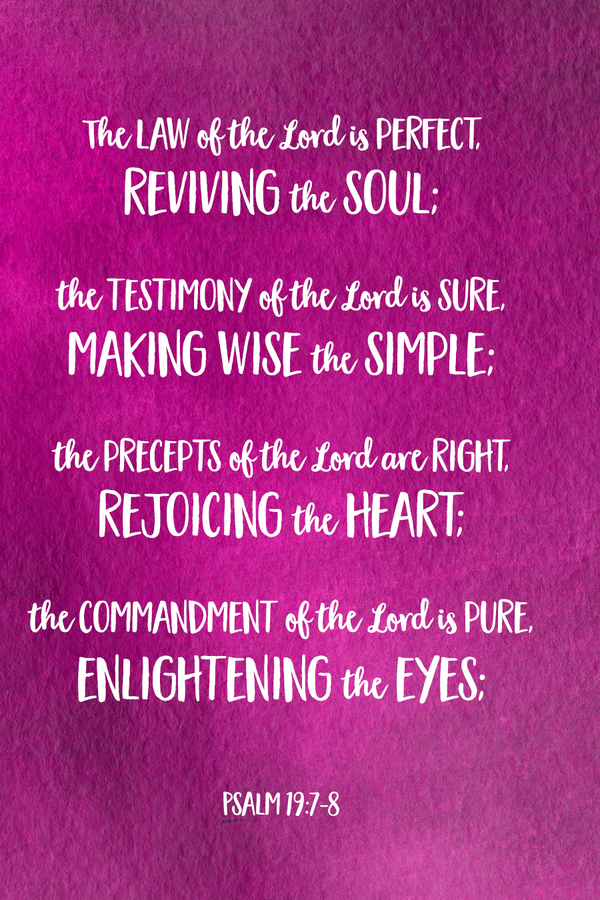 The LAW of the Lord is PERFECT,
REVIVING the SOUL;
the TESTIMONY of the Lord is SURE,
MAKING WISE the SIMPLE;
the PRECEPTS of the Lord are RIGHT,
REJOICING the HEART;
the COMMANDMENT of the Lord is PURE,
ENLIGHTENING the EYES;
PSALM 19:7-8